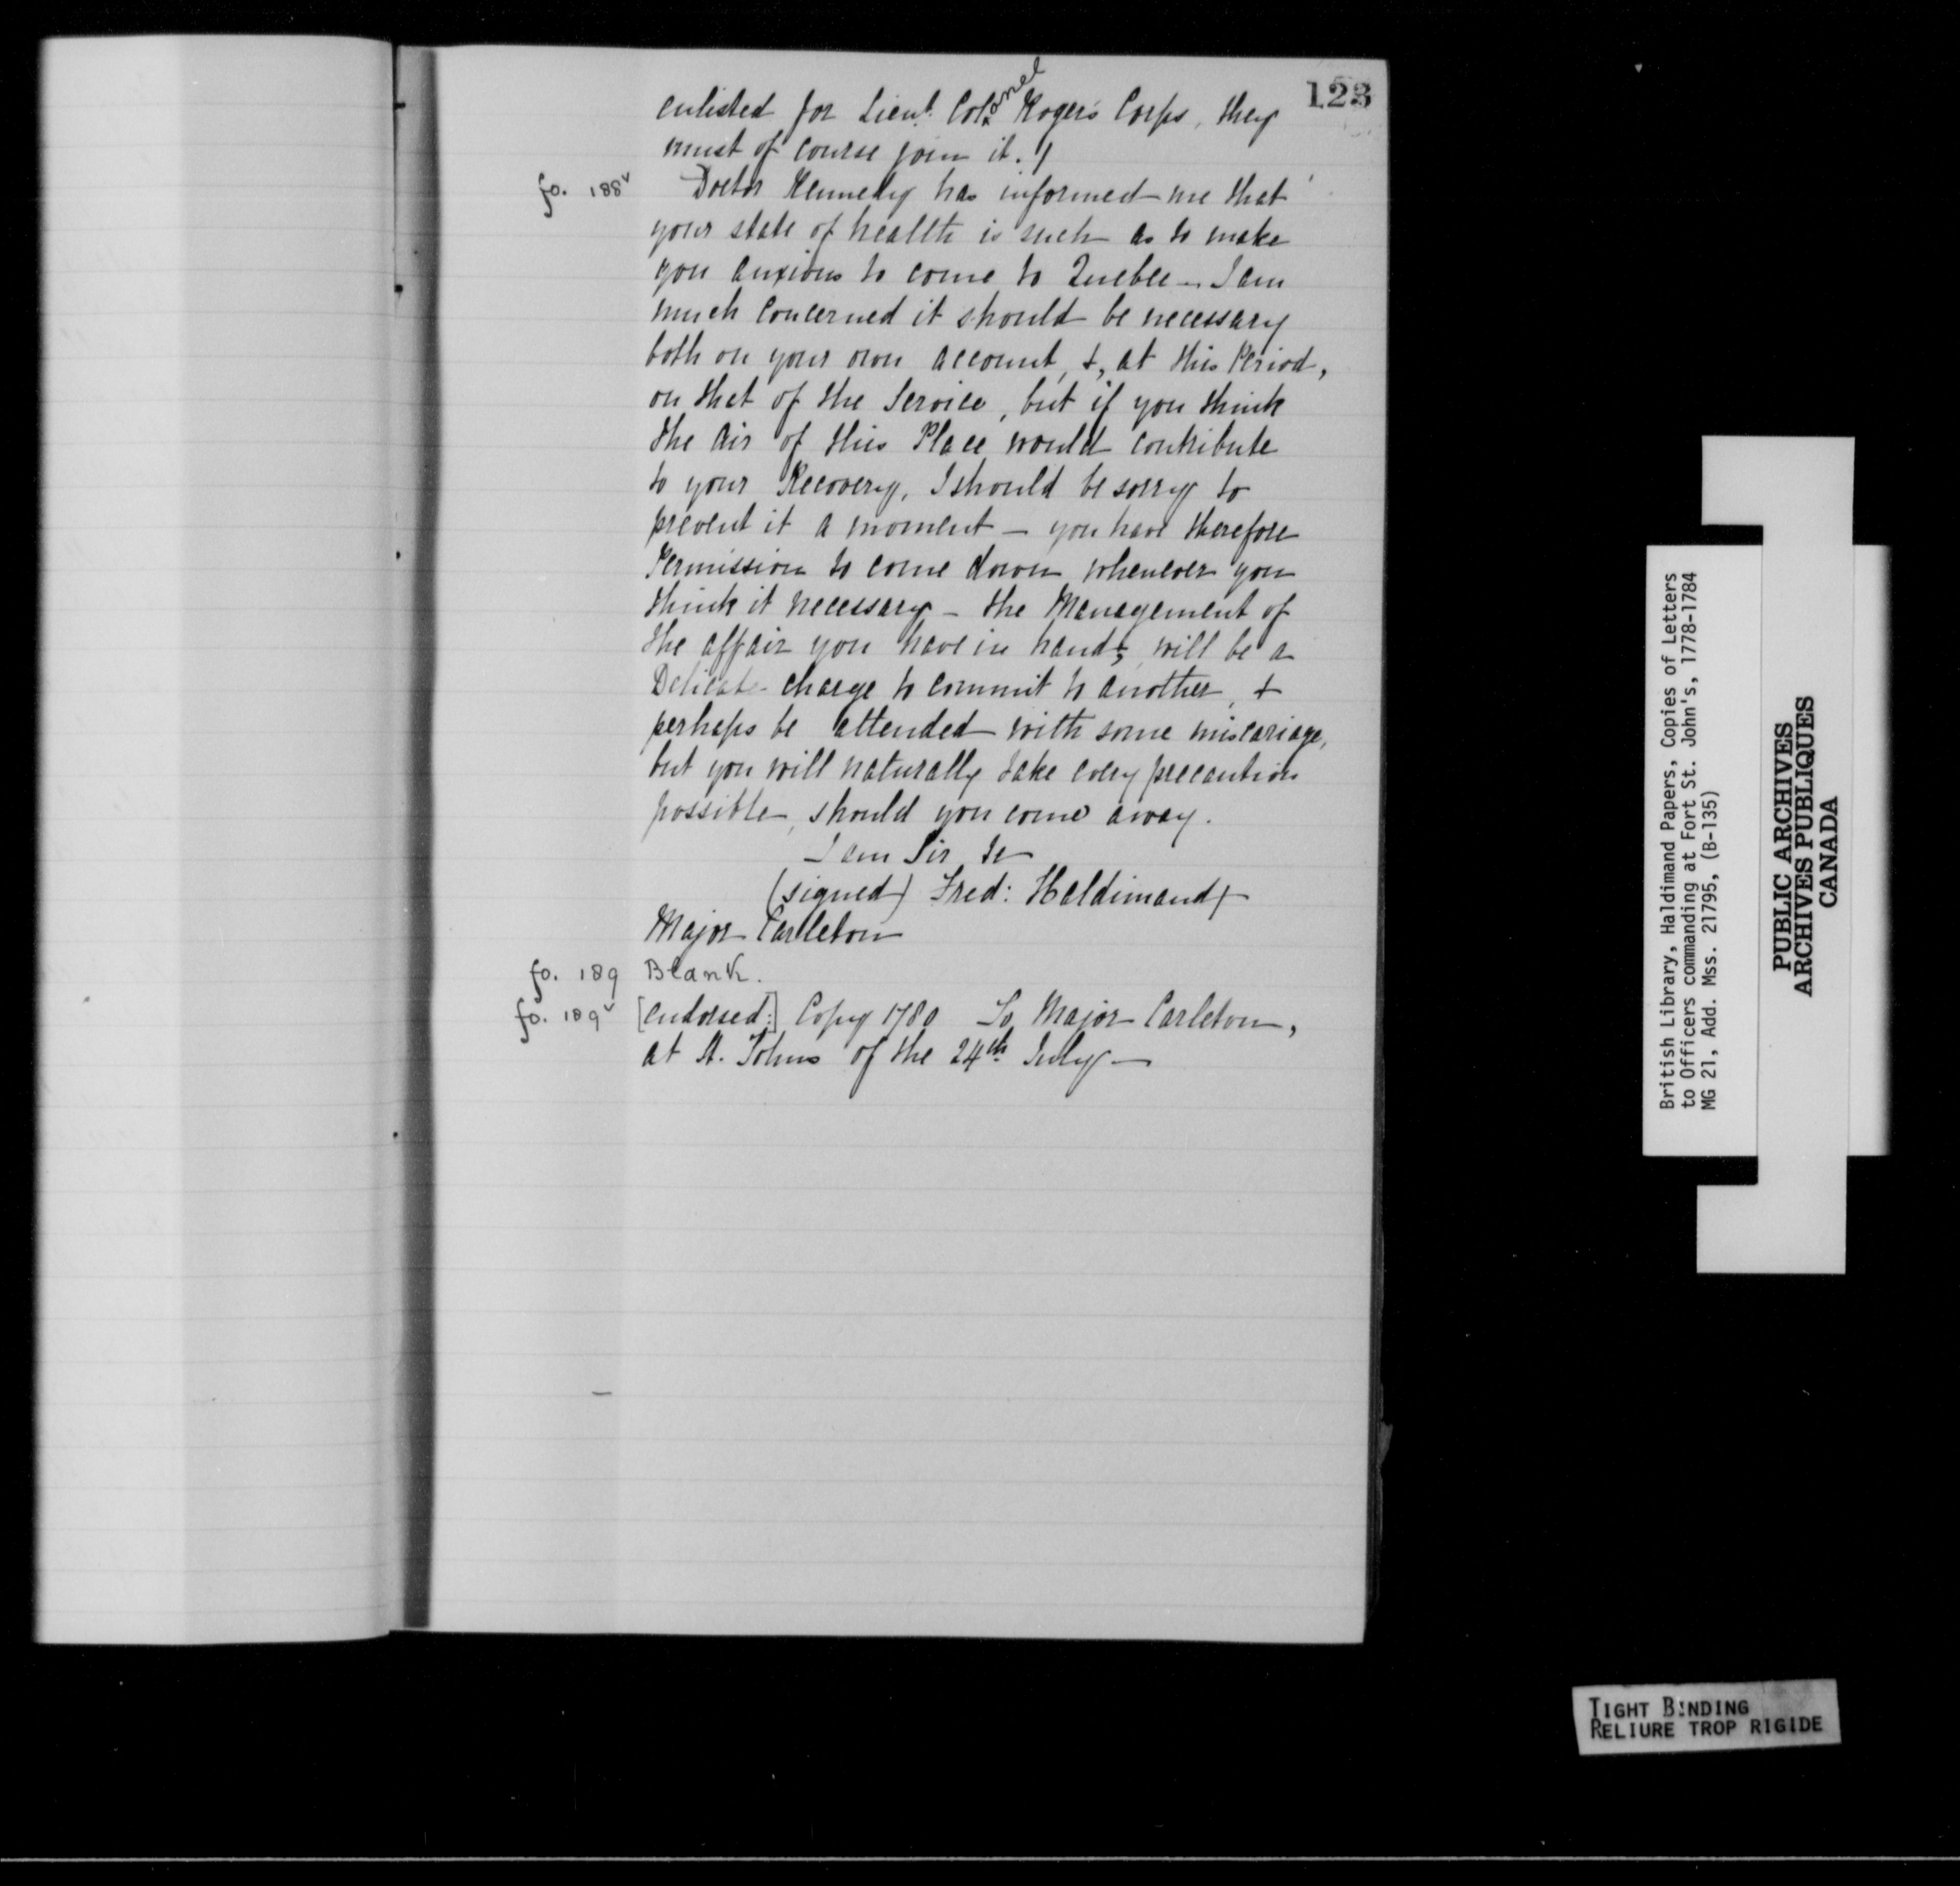 123
enlisted for Lieut. Colonel Rogers Corps, they
must of course join it. /
fo. 188v Doctor Kennedy has informed me that
your state of health is such as to make
you anxious to come to Quebec - I am
much concerned it should be necessary
both on your own account, +, at this Period,
on that of the Service, but if you think
the Air of this Place would contribute
to your Recovery, I should be sorry to
prevent it a moment - you have therefore
Permission to come down whenever you
think it necessary - the Management of
the affair you have in hand, will be a
Delicate charge to commit to another, +
perhaps be attended with some miscariage,
but you will naturally take every precaution
possible, should you come away.
I am Sir &c
(signed) Fred: Haldimand +
Major Carleton
fo. 189 Blank.
fo. 189v [endorsed:] Copy 1780 To Major Carleton,
at St. Johns of the 24th July -
British Library, Haldimand Papers, Copies of Letters
to Officers commanding at Fort St. John's, 1778-1784
MG 21, Add. Mss. 21795, (B-135)
PUBLIC ARCHIVES
ARCHIVES PUBLIQUES
CANADA
TIGHT BINDING
RELIURE TROP RIGIDE